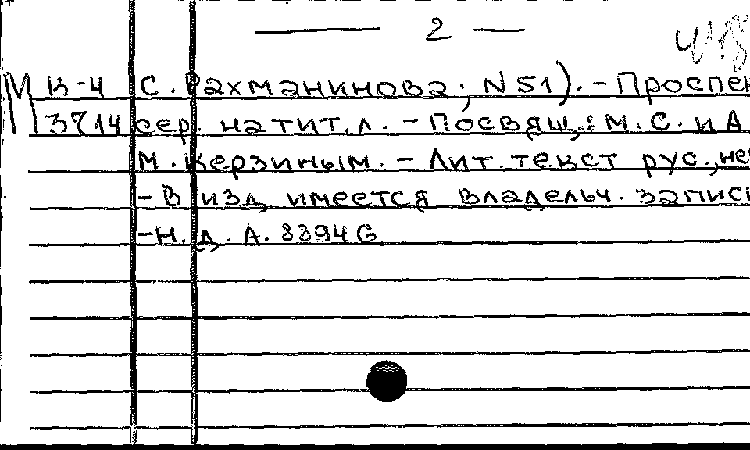 — 2 —
М К-4 С. Рахманинова; N 51). - Проспек
3714 сер. на тит. л. - Посвящ.: М. С. и А.
М. Керзиным. - Лит. текст рус., не
- В изд. имеется владельч. запис
- Н. д. А. 8394 G